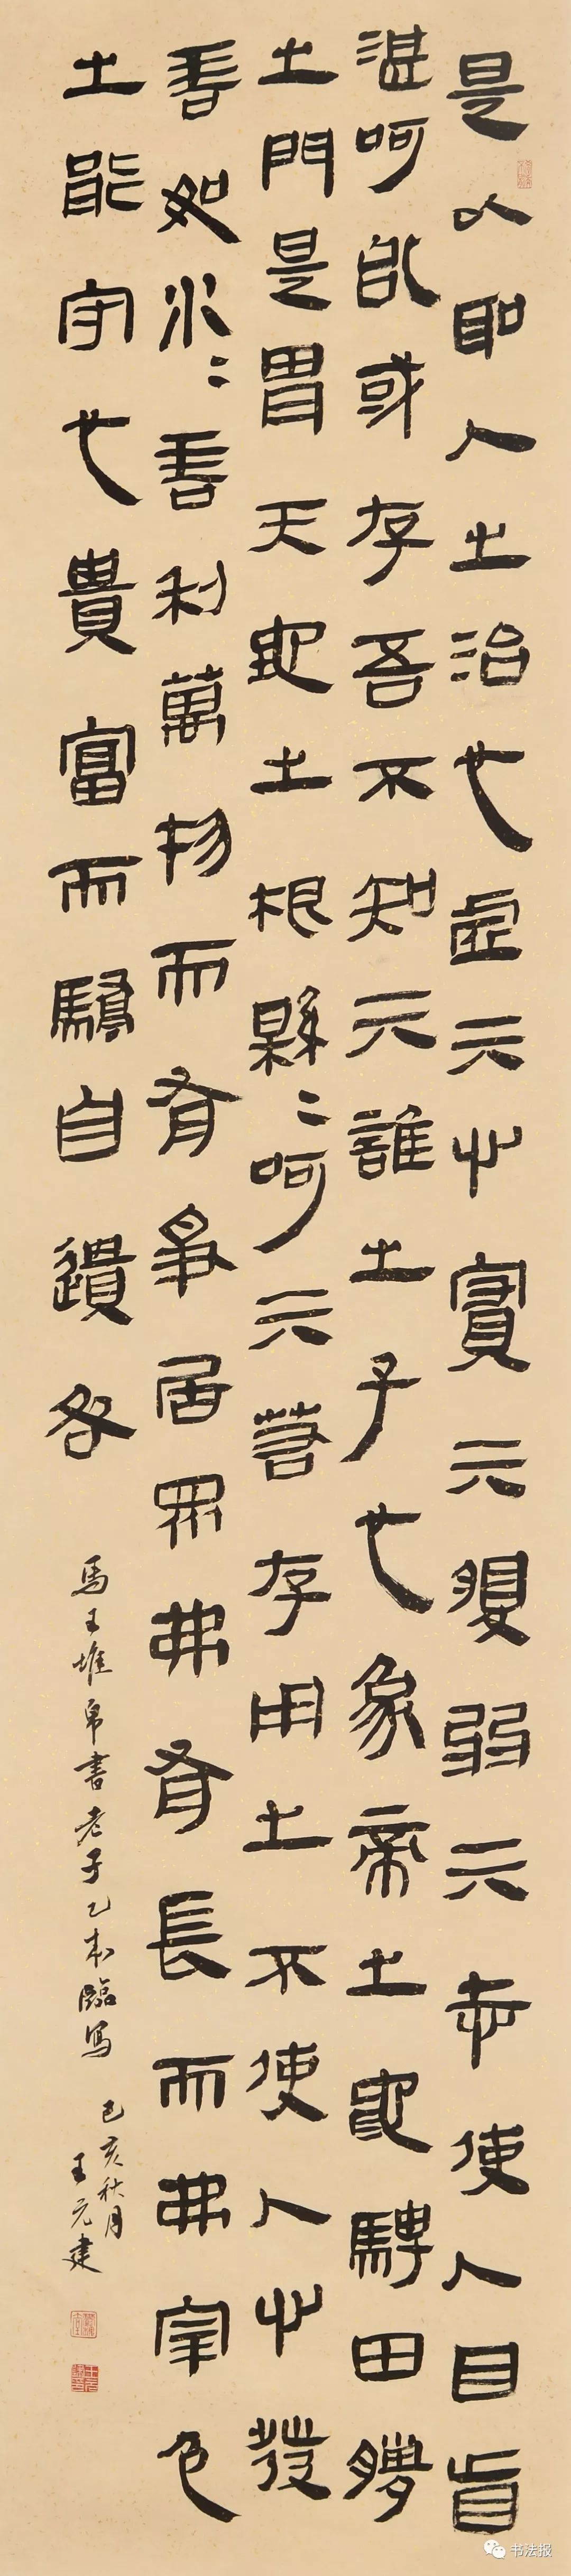 是以耶人之治也虛亓心實亓腹弱亓志使人目盲
湛呵佁或存吾不知亓誰之子也象帝之馳騁田臘
之門是胃天地之根緜〻呵亓若存用之不使人心發
善如水〻善利萬物而有爭居眾弗有長而弗宰也
之能守也貴富而驕自遺咎
馬王堆帛書老子乙本臨寫
己亥秋月
王元建
书法报